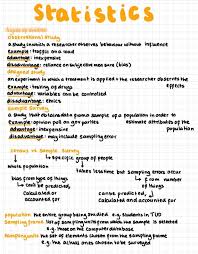 Statistics
types of studies
observational study
a study in which a researcher observes behaviour without influence
Example: traffic on a road
advantage: inexpensive
disadvantage: reliance on subjective measures (bias)
designed study
an experiment in which a treatment is applied + the researcher observes the effects
Example: testing of drugs
advantage: variables can be controlled
disadvantage: ethics
Sample Survey
a study that obtains data from a sample of a population in order to estimate attributes of the population
Example: opinion poll on gov parties
advantage: inexpensive
disadvantage: may include sampling error
census vs Sample Survey
whole population
specific group of people
takes less time but sampling error occur
bias from type of things
can't be predicted,
calculated or
accounted for
from number of things
can be predicted,
calculated and
accounted for
population: the entire group being studied e.g. students in TUD
sampling frame: list of sampling units from which the sample is selected
e.g. those on the computer database
sampling units: the set of elements chosen from the sampling frame
e.g. the actual ones chosen to be surveyed